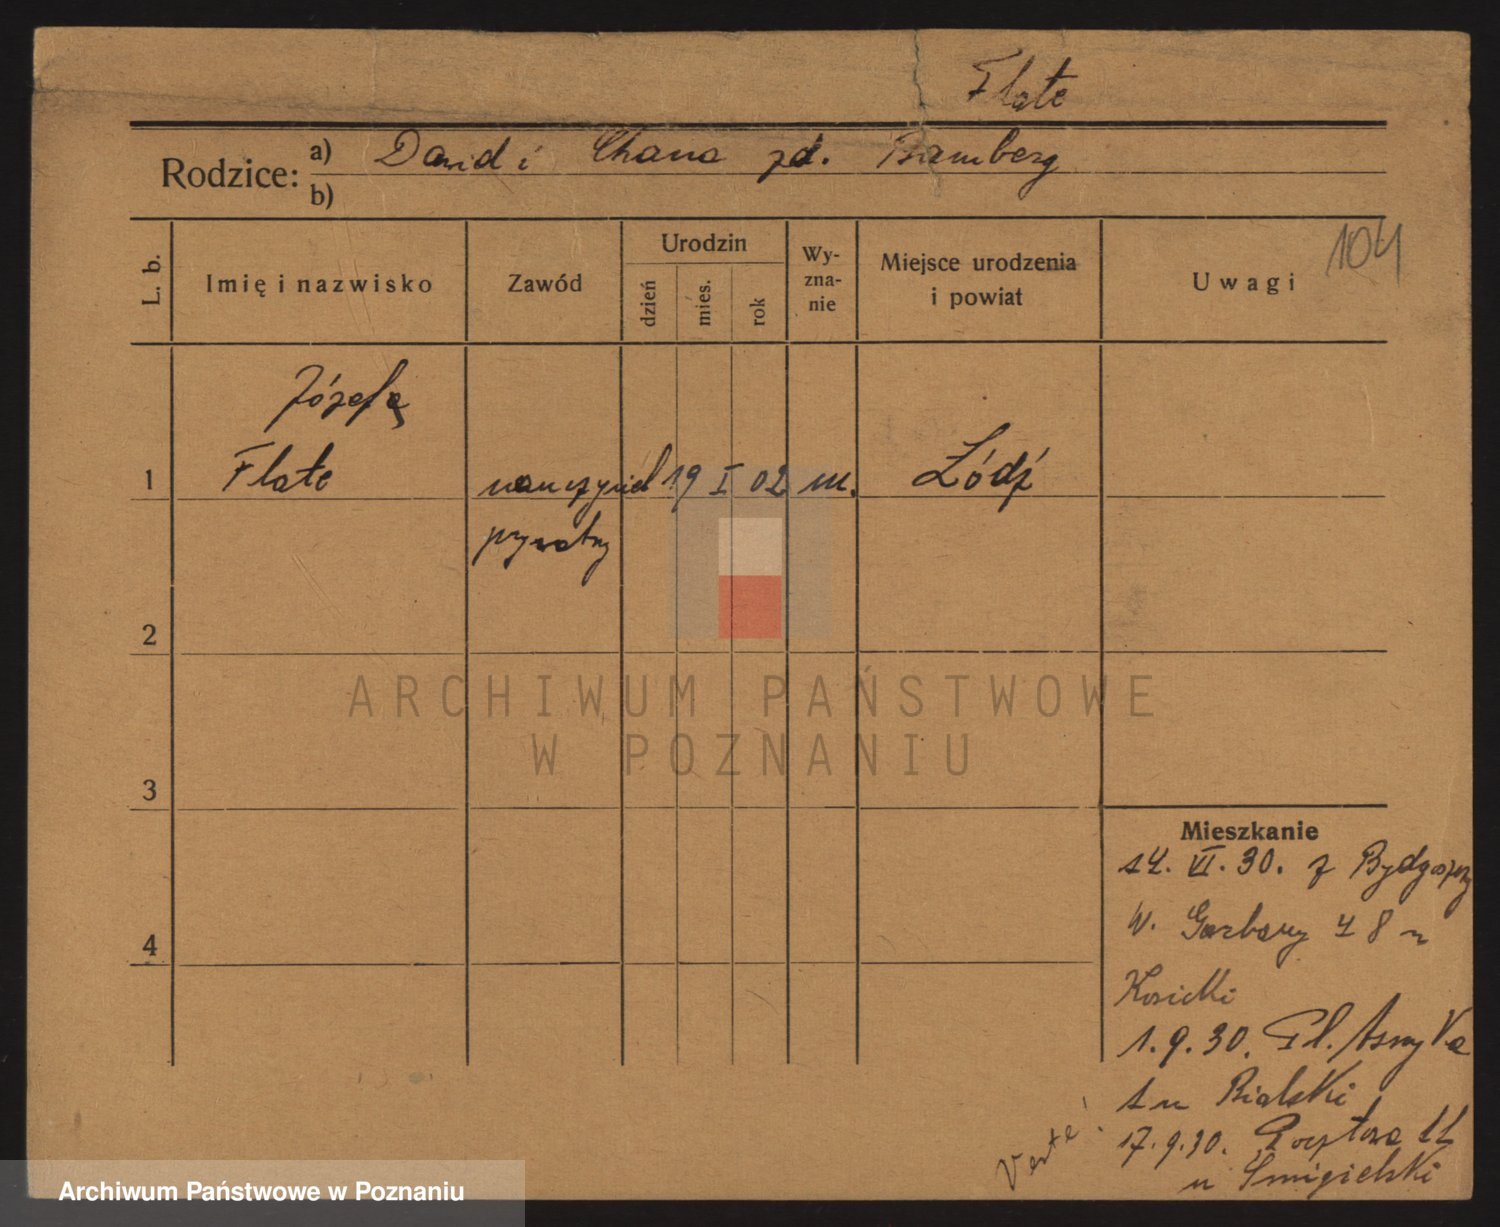 Flate
Rodzice: a) Dawid i Chana zd. Bamberg
b)
104
L. b. Imię i nazwisko Zawód Urodzin dzień mies. rok Wyznanie Miejsce urodzenia i powiat Uwagi
Józef
1 Flate nauczyciel 19 I 02 m. Łódź
prywatny
2
3
4
ARCHIWUM PAŃSTWOWE
W POZNANIU
Mieszkanie
14. VI. 30. z Bydgoszczy
W. Garbary 48 u
Kosicki
1.9.30. Pl. Asnyka
1 u Bialski
17.9.30. Pocztowa 11
u Śmigielski
Verte!
Archiwum Państwowe w Poznaniu